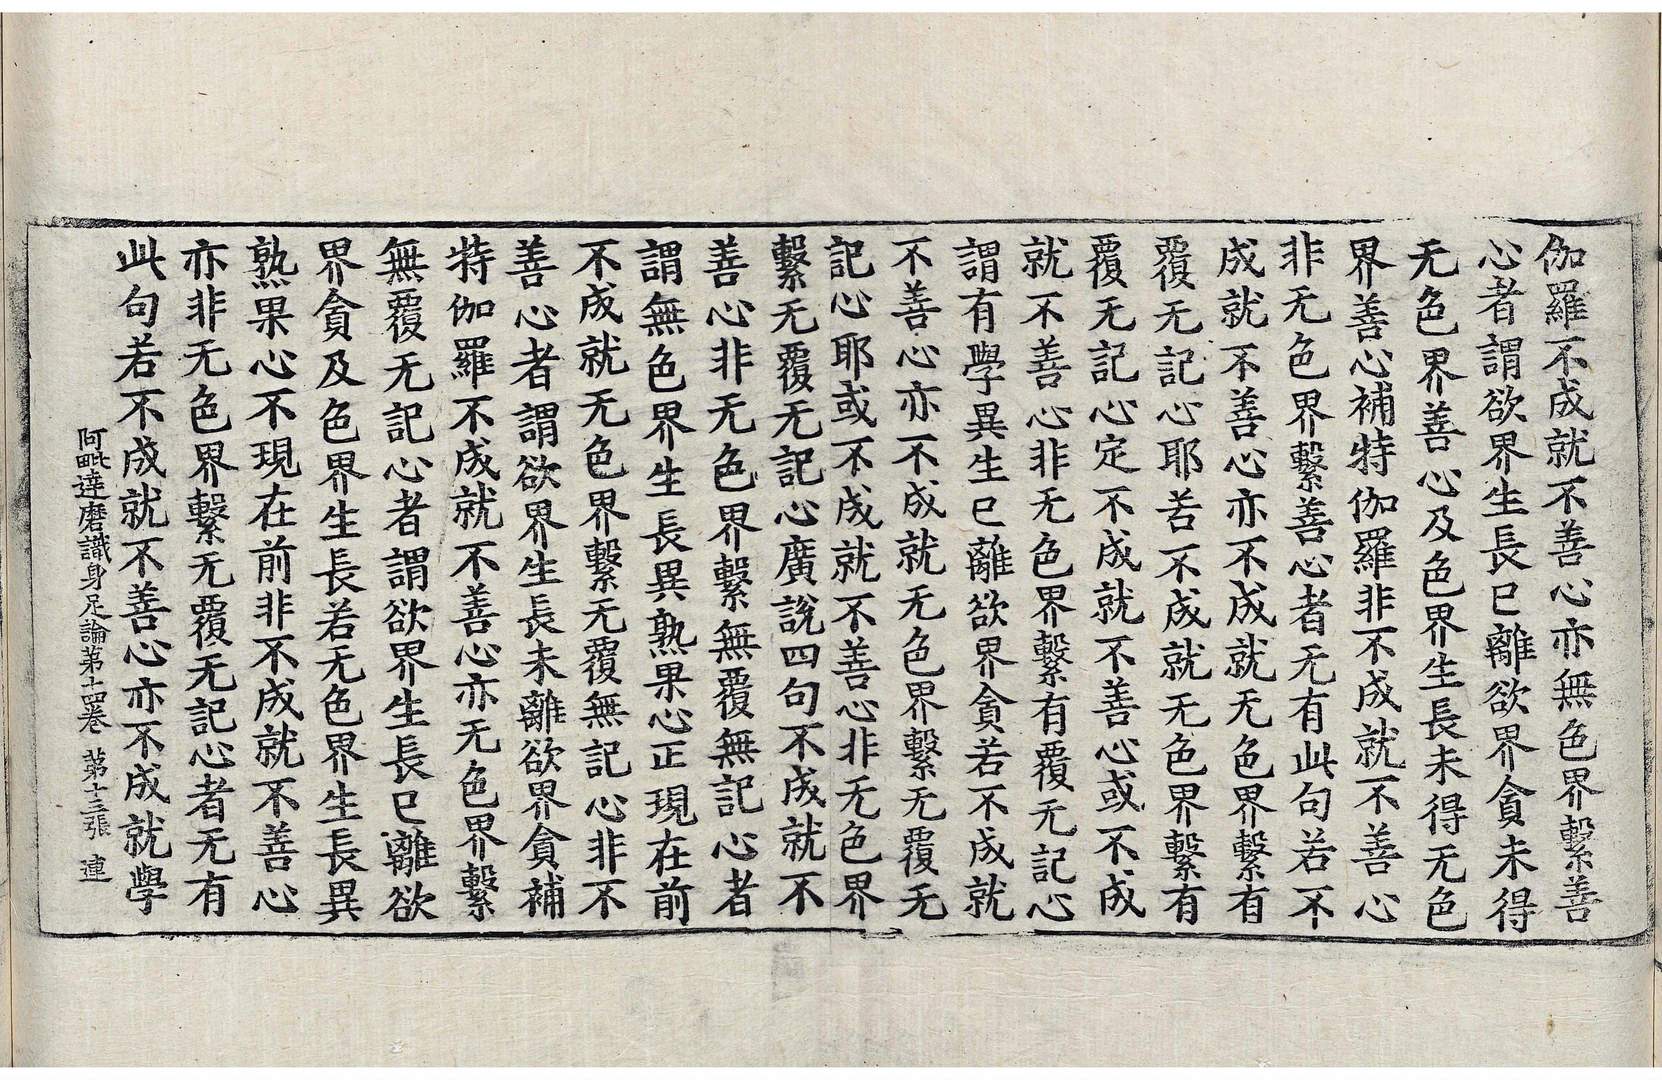 伽羅不成就不善心亦無色界繫善
心者謂欲界生長已離欲界貪未得
无色界善心及色界生長未得无色
界善心補特伽羅非不成就不善心
非无色界繫善心者无有此句若不
成就不善心亦不成就无色界繫有
覆无記心耶若不成就无色界繫有
覆无記心定不成就不善心或不成
就不善心非无色界繫有覆无記心
謂有學異生已離欲界貪若不成就
不善心亦不成就无色界繫无覆无
記心耶或不成就不善心非无色界
繫无覆无記心廣說四句不成就不
善心非无色界繫無覆無記心者
謂無色界生長異熟果心正現在前
不成就无色界繫无覆無記心非不
善心者謂欲界生長未離欲界貪補
特伽羅不成就不善心亦无色界繫
無覆无記心者謂欲界生長已離欲
界貪及色界生長若无色界生長異
熟果心不現在前非不成就不善心
亦非无色界繫无覆无記心者无有
此句若不成就不善心亦不成就學
阿毗達磨識身足論第十四卷 第十三張 連